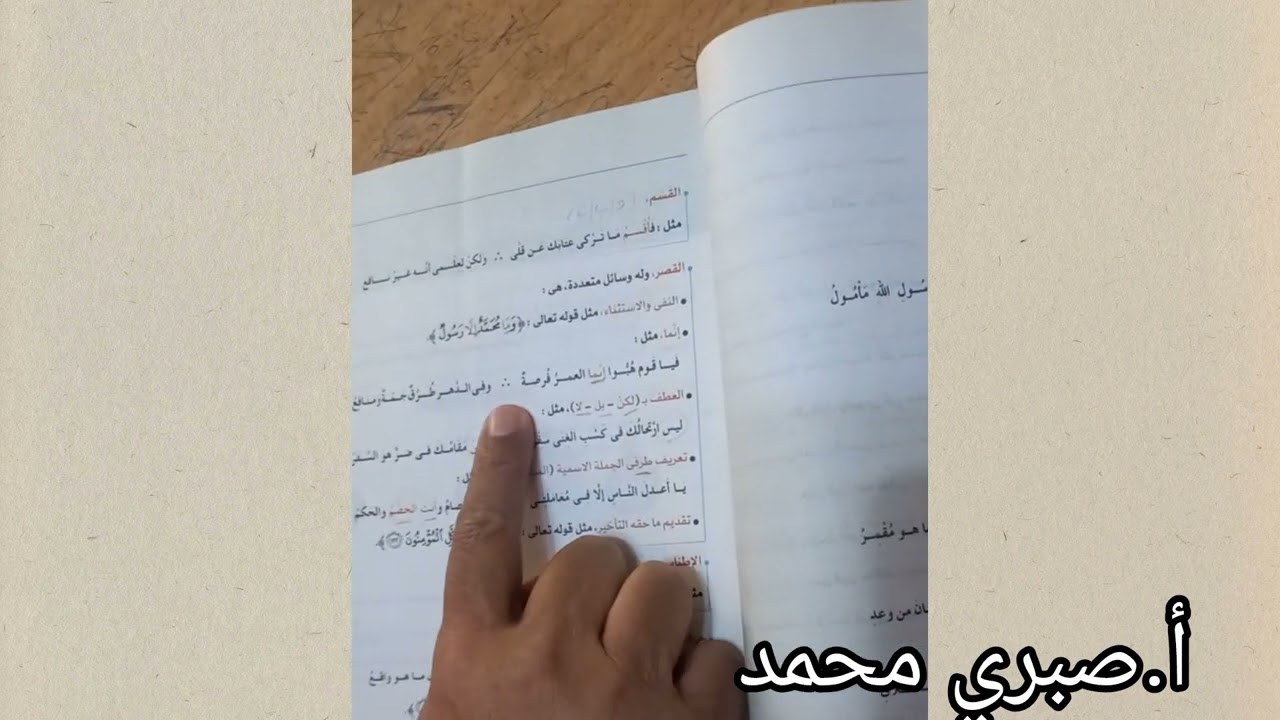 القسم،
مثل : فأقسم ما تركى عتابك عن قلى ∴ ولكن لعلمى أنه غير نافع
القصر، وله وسائل متعددة، هى :
النفى والاستثناء، مثل قوله تعالى : ﴿وَمَا مُحَمَّدٌ إِلَّا رَسُولٌ﴾.
إنما، مثل :
فيا قوم هُبُّوا إنما العمرُ فُرصةٌ ∴ وفى الدهر طُرْقٌ جمةٌ ومنافعُ
العطف بـ (لكن - بل - لا)، مثل :
ليس ارتحالُك فى كَسْب الغنى مقامُك فى ضرٍّ هو السَّفر
تعريف طرفى الجملة الاسمية
يا أعدل النَّاسِ إلَّا فى مُعاملتى وأنت الخصم والحكم
تقديم ما حقه التأخير، مثل قوله تعالى : الْمُؤْمِنُونَ
الإطناب
ما هو واقعُ
سُولِ اللهِ مَأْمُولُ
ا هو مُقْمِرُ
ان من وعدِ
أ.صبري محمد